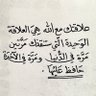 علاقتك مع الله هي العلاقة
الوحيدة التي ستنقذك مرتين
مرة في الدنيا ومرة في الآخرة
حافظ عليها